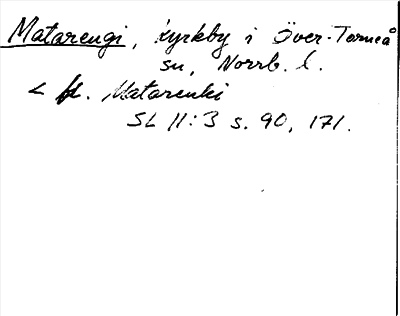 Matarengi, kyrkby i Över-Torneå
sn, Norrb. l.
< f. Matarenki
SL 11:3 s. 90, 171.